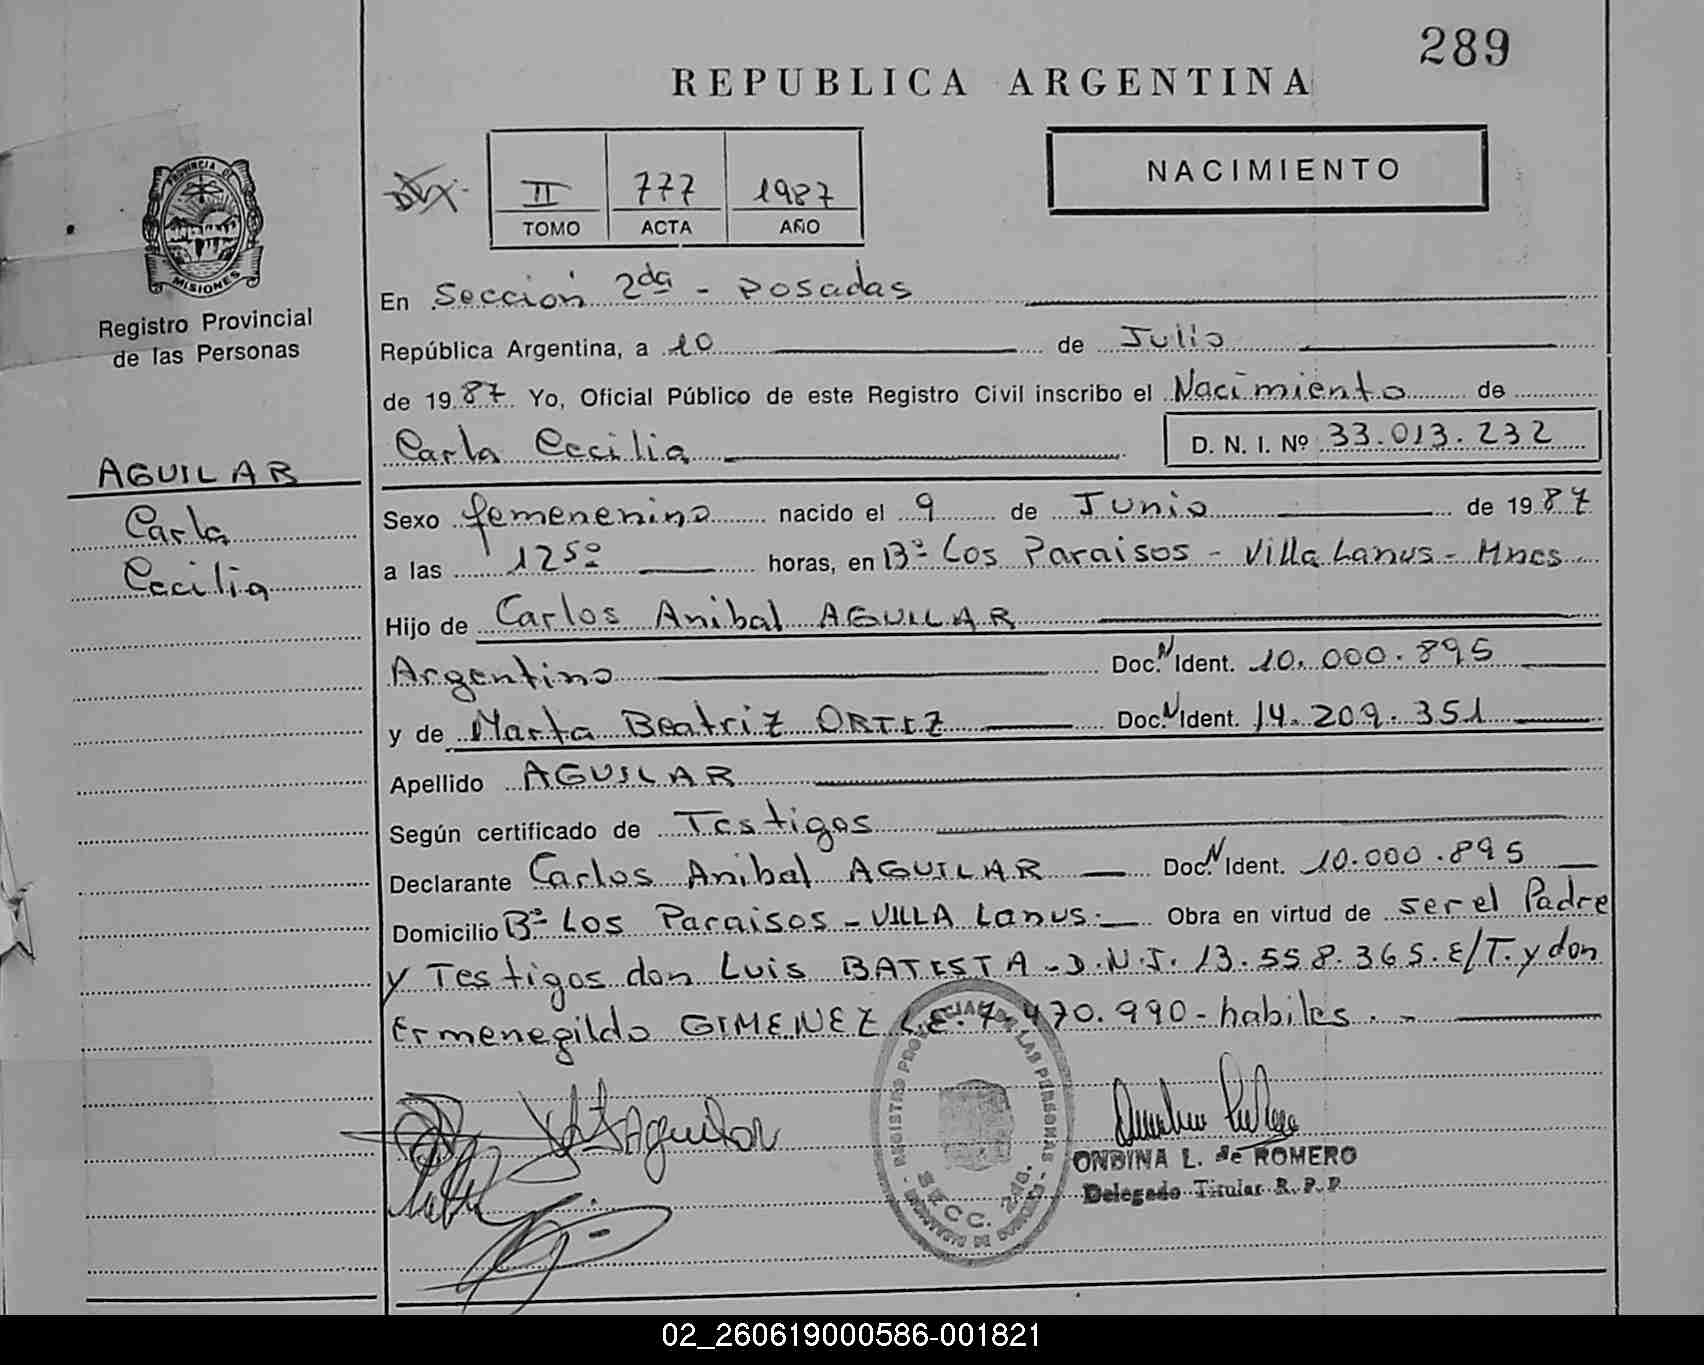 289
REPUBLICA ARGENTINA
II 777 1987
TOMO ACTA AÑO
NACIMIENTO
PROVINCIA DE
MISIONES
Registro Provincial
de las Personas
AGUILAR
Carla
Cecilia
En Sección 2da - Posadas
República Argentina, a 10 de Julio
de 1987 Yo, Oficial Público de este Registro Civil inscribo el Nacimiento de
Carla Cecilia D. N. I. Nº 33.013.232
Sexo femenenino nacido el 9 de Junio de 1987
a las 1250 horas, en Bº Los Paraisos - Villa Lanus - Mnes
Hijo de Carlos Anibal AGUILAR
Argentino Doc. N Ident. 10.000.895
y de Marta Beatriz ORTIZ Doc. N Ident. 14.209.351
Apellido AGUILAR
Según certificado de Testigos
Declarante Carlos Anibal AGUILAR Doc. N Ident. 10.000.895
Domicilio Bº Los Paraisos - VILLA Lanus. Obra en virtud de ser el Padre
y Testigos don Luis BATISTA - D.N.I. 13.558.365. E/T. y don
Ermenegildo GIMENEZ L.E. 7.470.990 - habiles. -
Aguilar
REGISTRO PROVINCIAL DE LAS PERSONAS
SECC. 2da.
ONDINA L. de ROMERO
Delegado Titular R. P. P
02_260619000586-001821